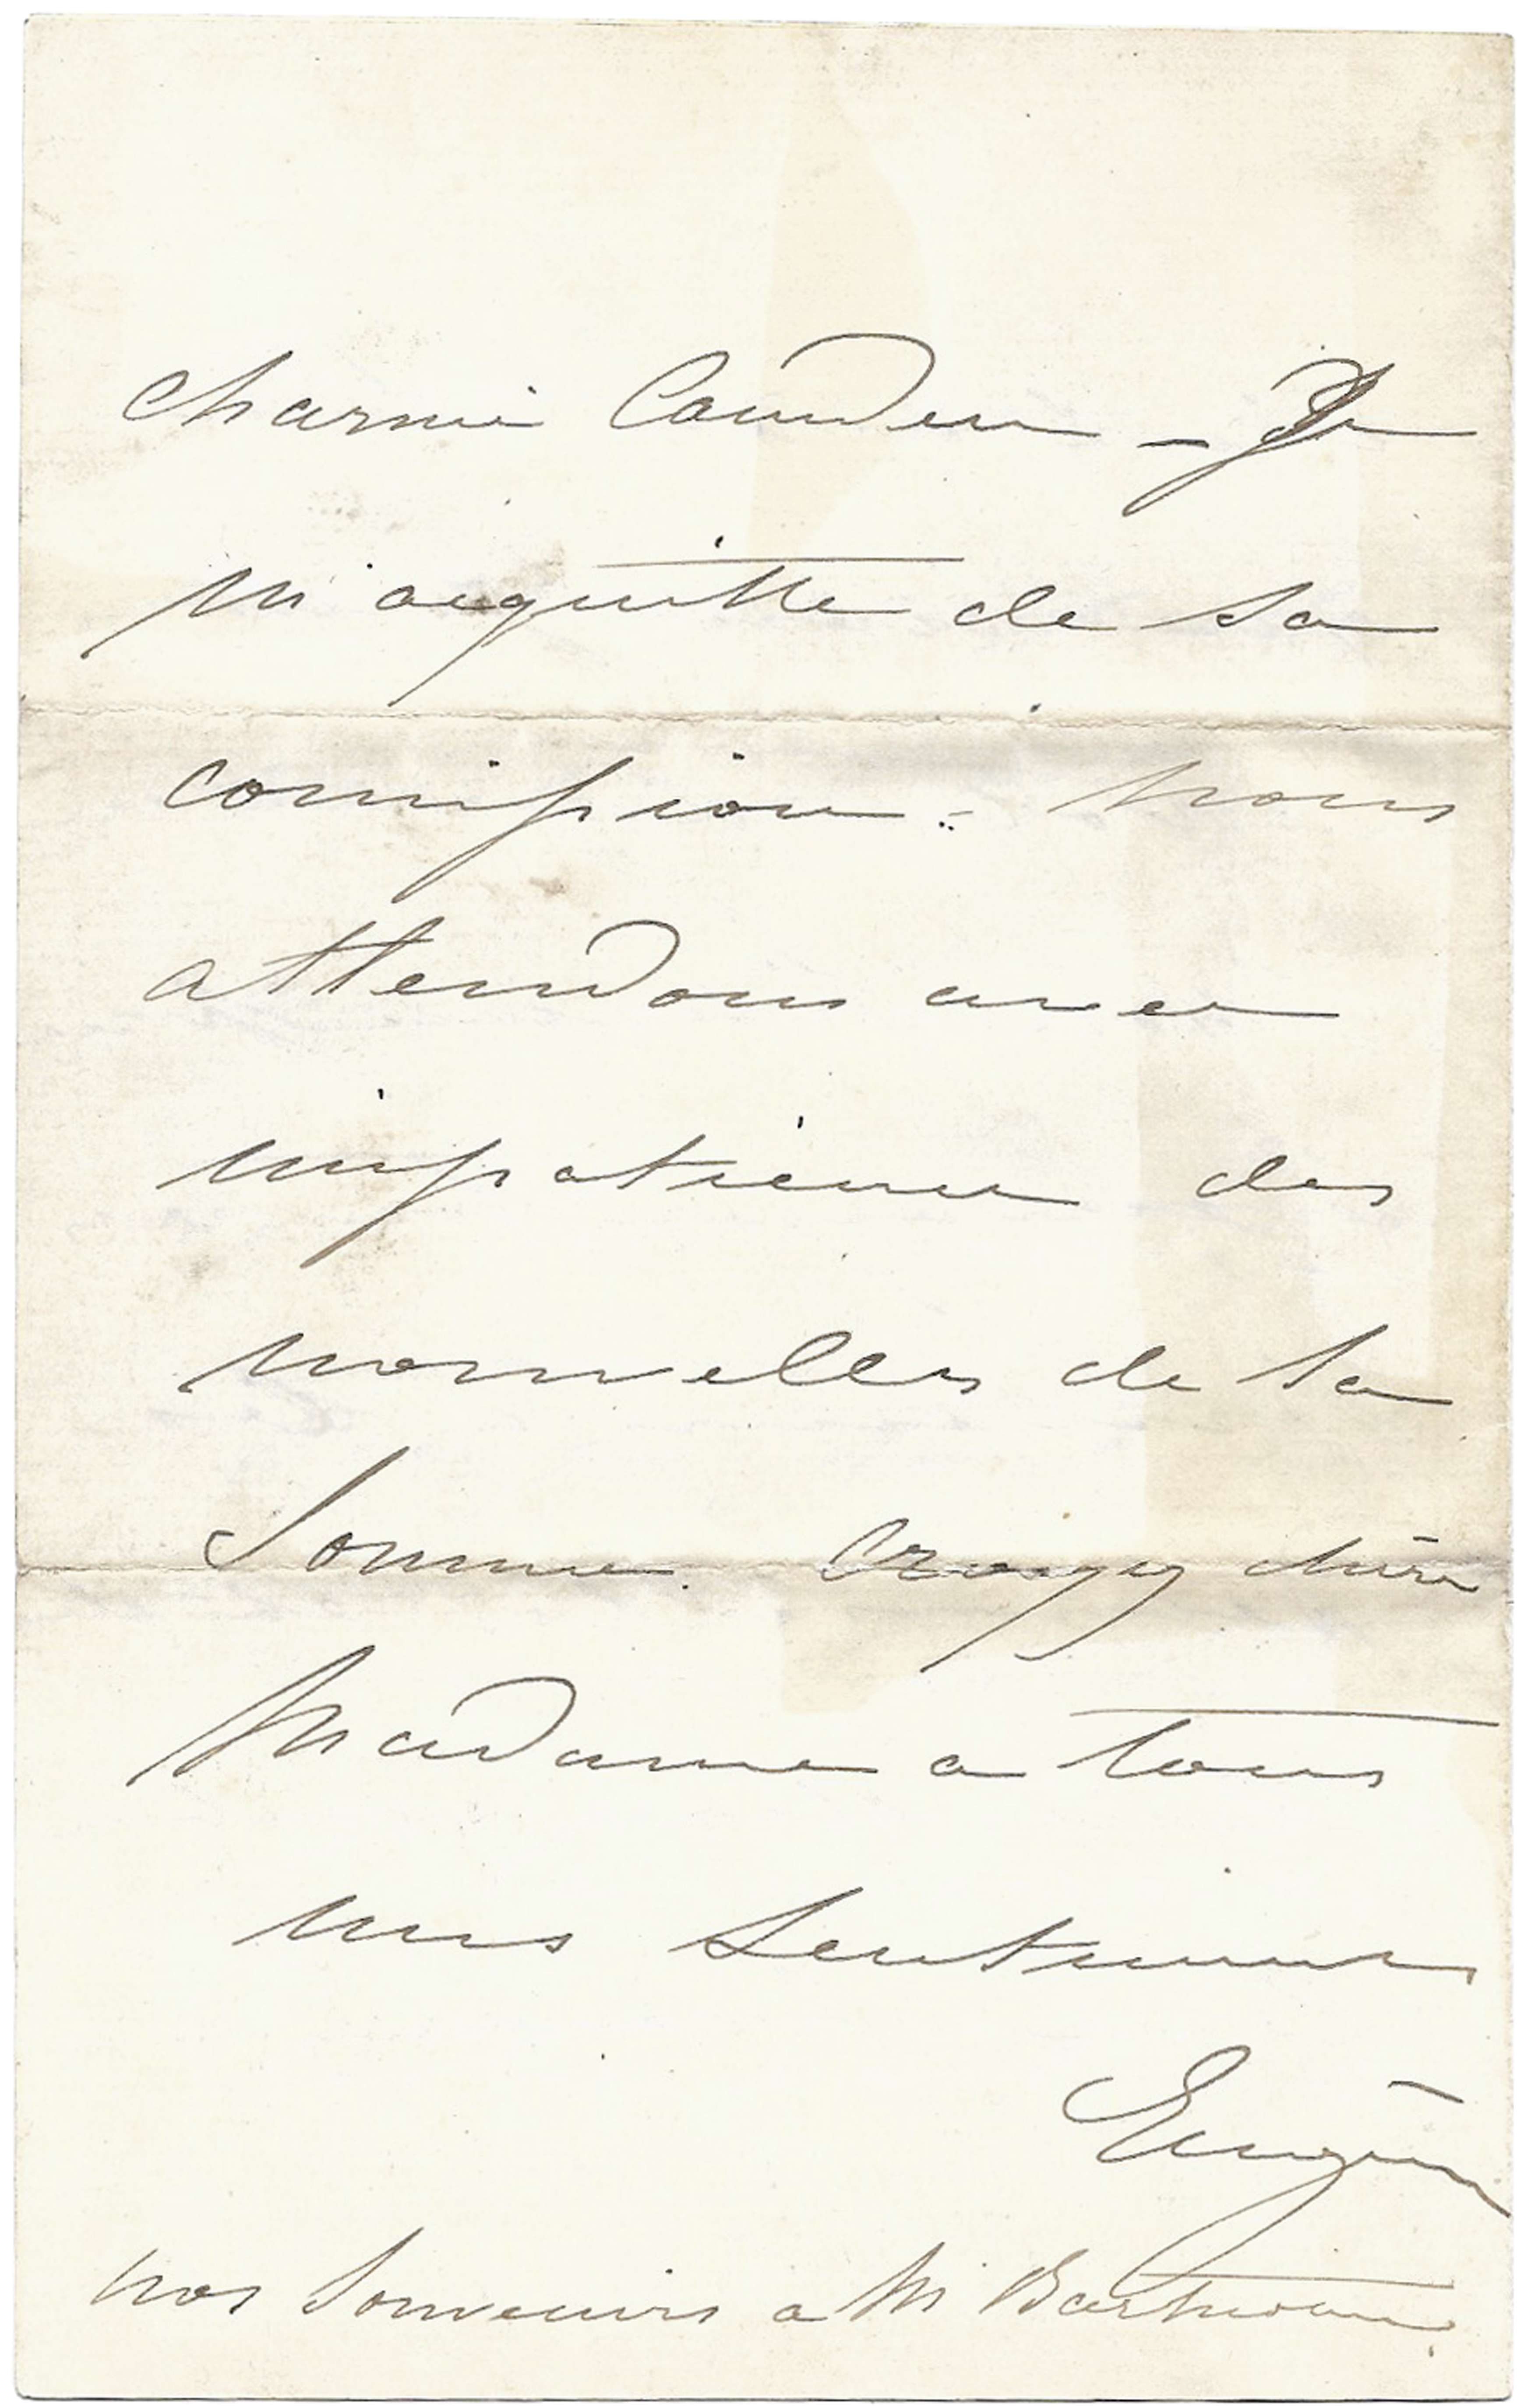 Je
m'acquitte de sa
comission : nous
attendons avec
impatience des
nouvelles de la
Somme. Croyez chère
Madame a tous
mes Sentiments
nos Souvenirs a Mr